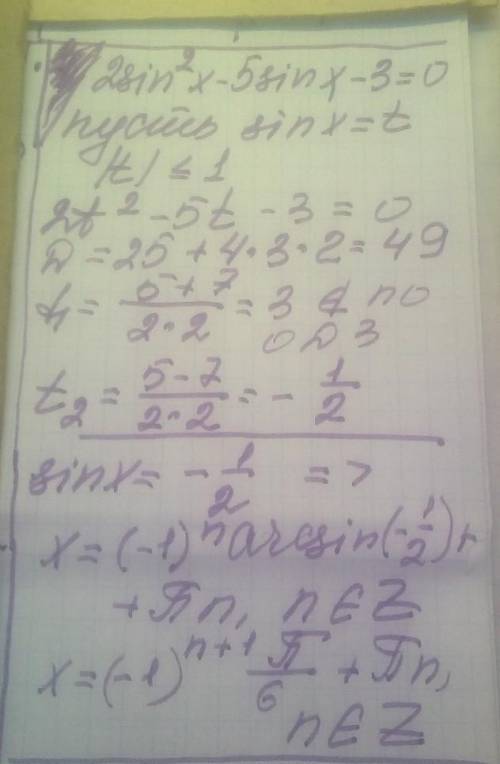 2sin²x-5sinx-3=0
пусть sinx=t
|t|≤1
2t²-5t-3=0
D=25+4·3·2=49
t₁=\frac{5+7}{2·2}=3 ∉ по
ОДЗ
t₂=\frac{5-7}{2·2}=-\frac{1}{2}
sinx=-\frac{1}{2} =>
x=(-1)ⁿarcsin(-\frac{1}{2})+
+Пn, n∈Z
x=(-1)ⁿ⁺¹\frac{П}{6}+Пn,
n∈Z